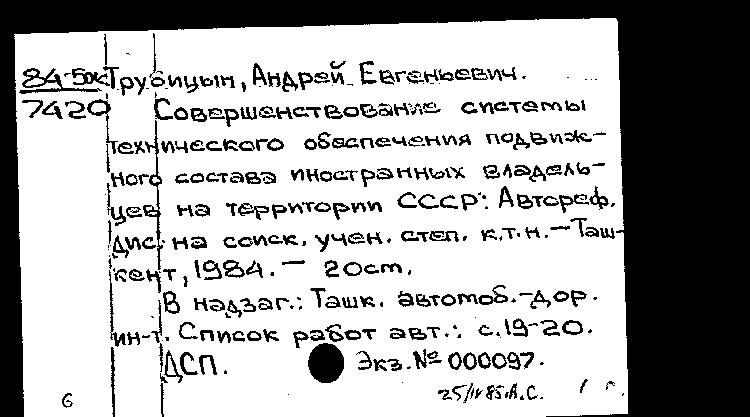 84-5ок Трубицын, Андрей Евгеньевич.
7420 Совершенствование системы
технического обеспечения подвиж-
ного состава иностранных владель-
цев на территории СССР: Автореф.
дис. на соиск. учен. степ. к.т.н. — Таш-
кент, 1984. — 20 ст.
В надзаг.: Ташк. автомоб.-дор.
ин-т. Список работ авт.: с.19-20.
ДСП. Экз. № 000097.
6 25/IV 85. А.С.